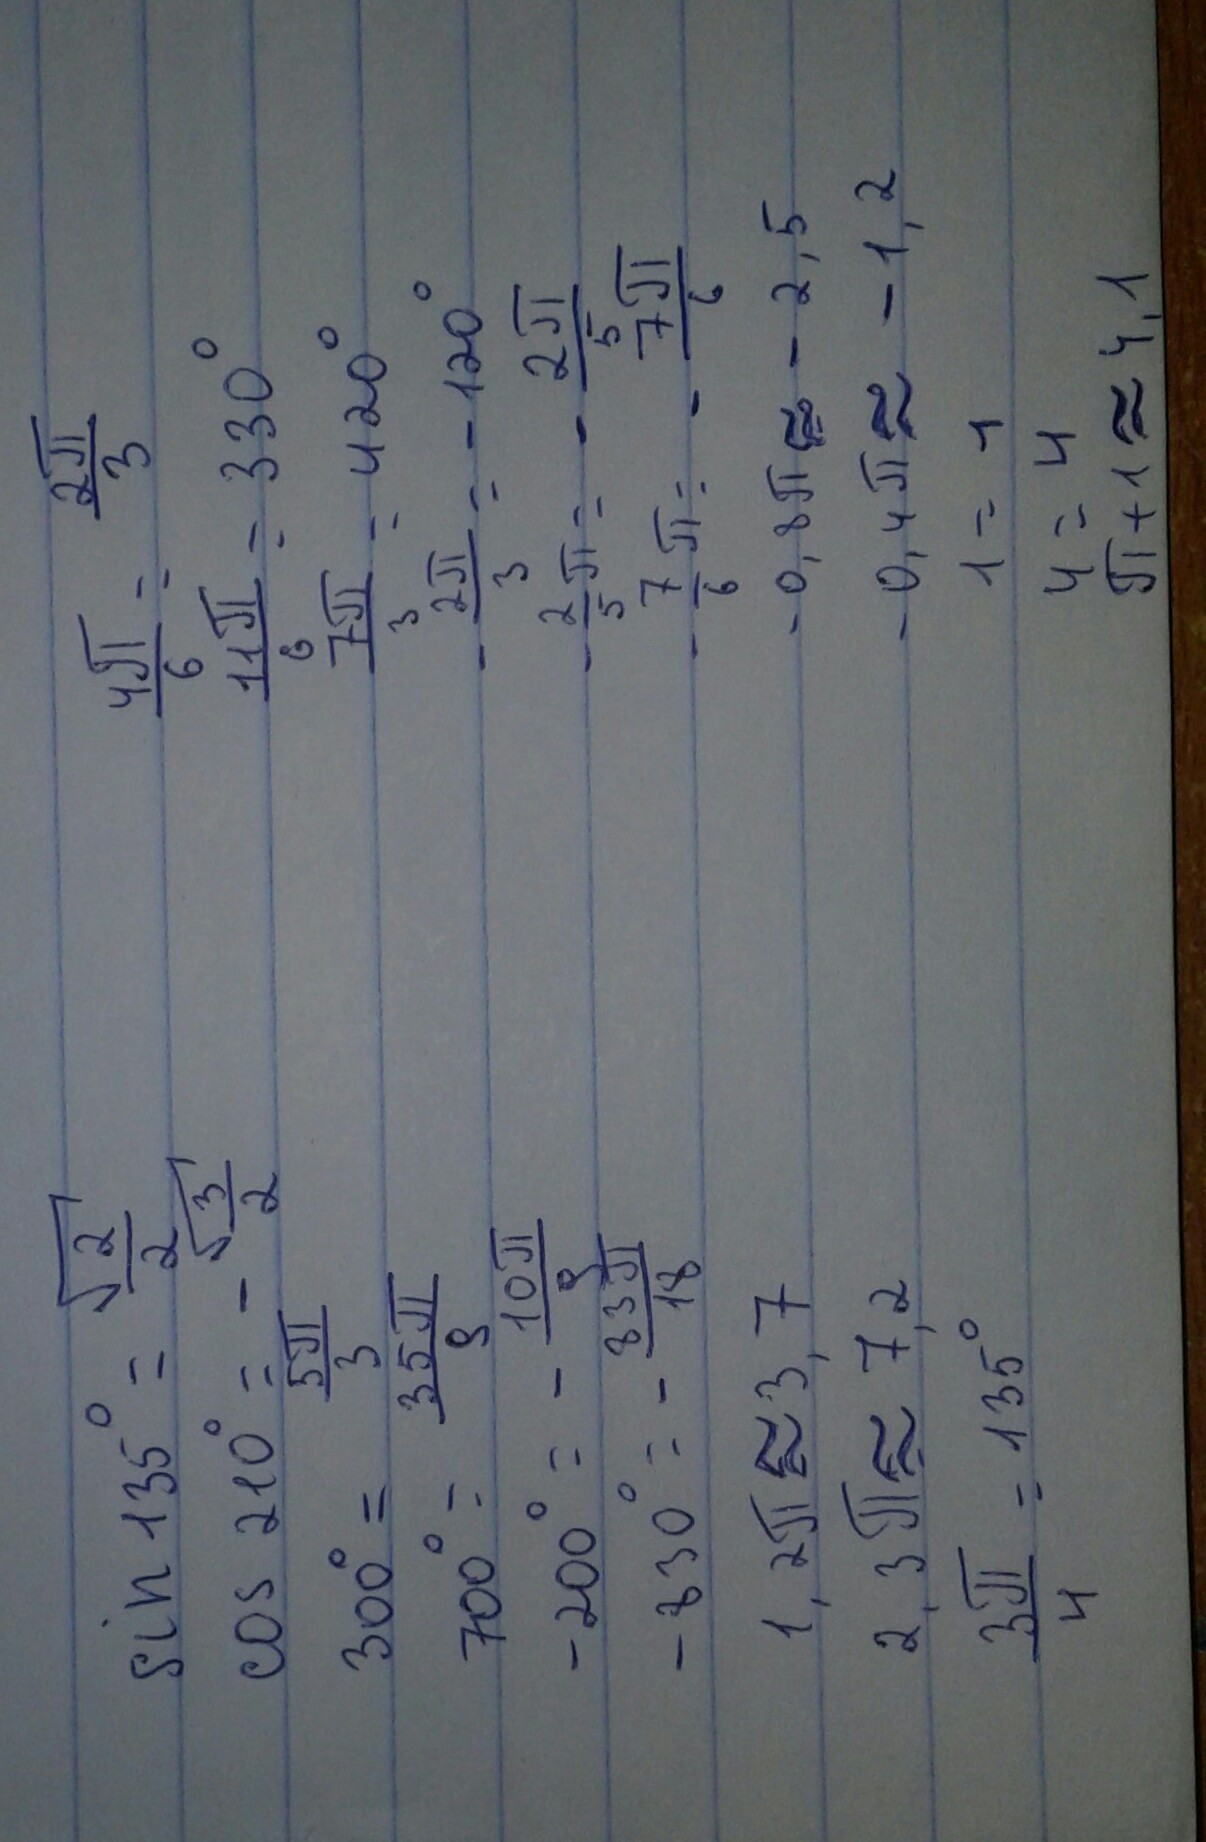 sin 135° = √2/2
cos 210° = - √3/2
300° = 5π/3
700° = 35π/9
-200° = - 10π/9
-830° = - 83π/18
1,2π ≈ 3,7
2,3π ≈ 7,2
3π/4 = 135°
4π/6 = 2π/3
11π/6 = 330°
7π/3 = 420°
- 2π/3 = - 120°
- 2/5 π = - 2π/5
- 7/6 π = - 7π/6
- 0,8π ≈ - 2,5
- 0,4π ≈ - 1,2
1 = 1
4 = 4
π + 1 ≈ 4,1